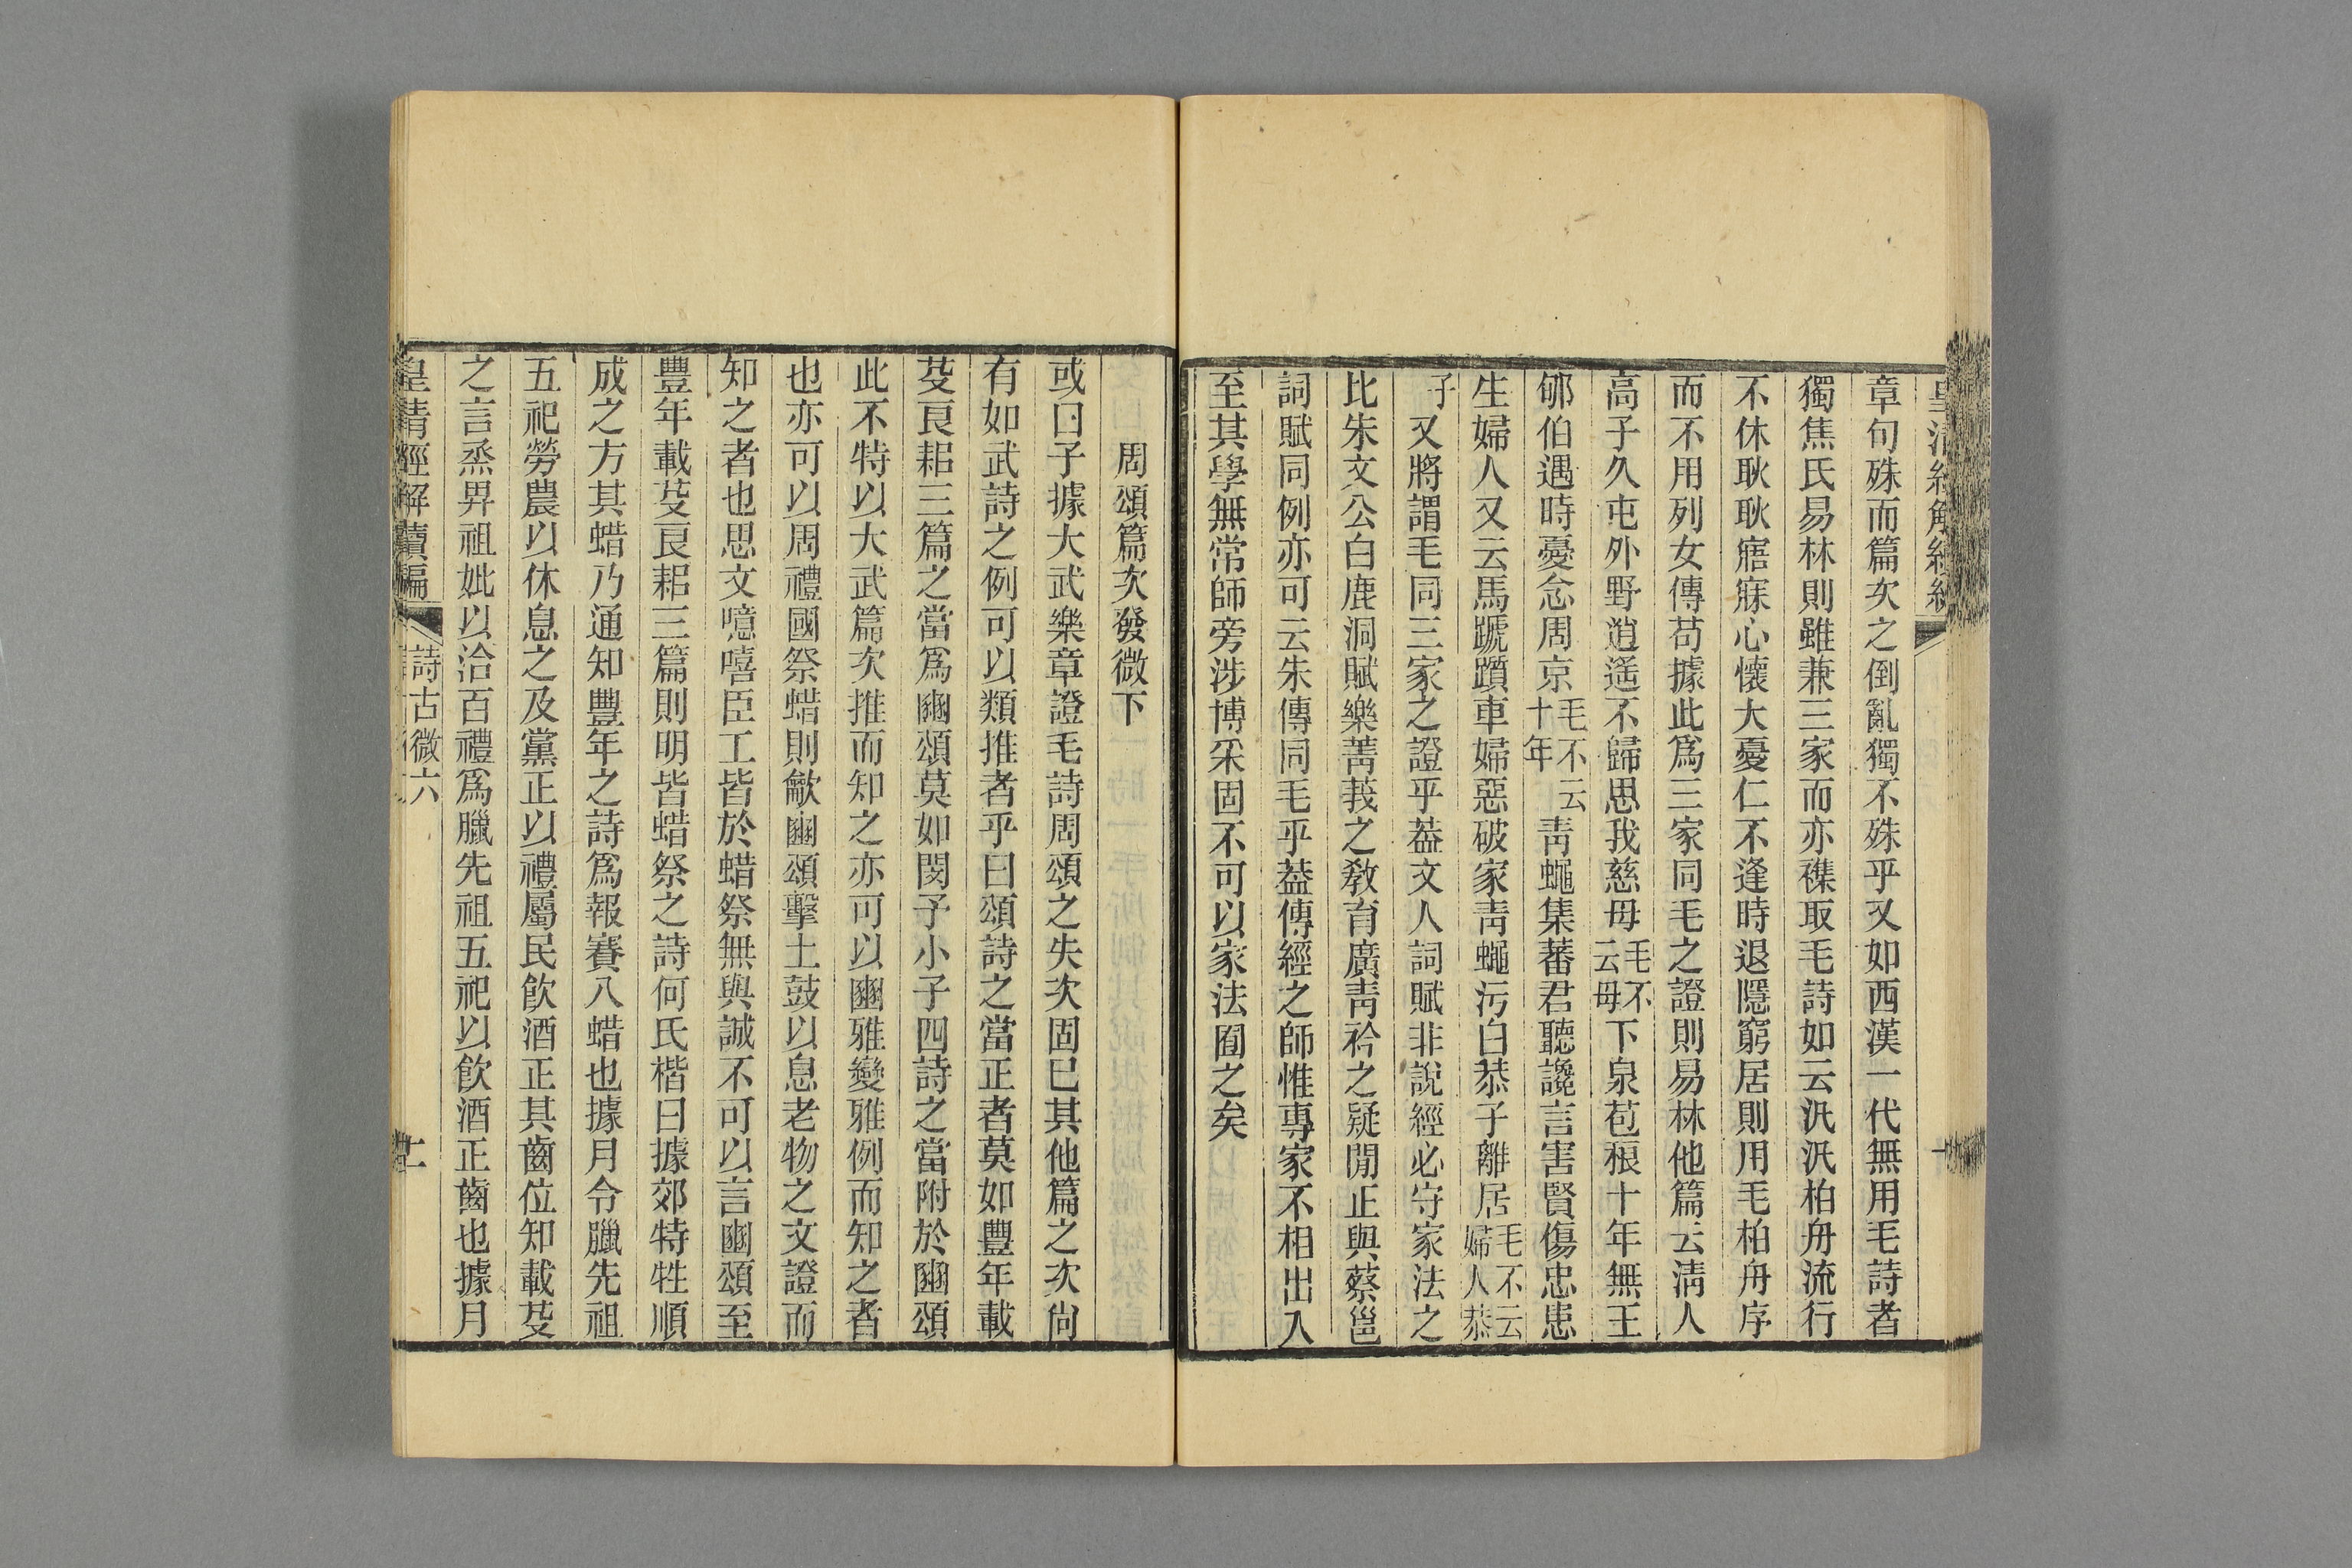 章句殊而篇次之倒亂獨不殊乎又如西漢一代無用毛詩者
獨焦氏易林則雖兼三家而亦襍取毛詩如云汎汎柏舟流行
不休耿耿寤寐心懷大憂仁不逢時退隱窮居則用毛柏舟序
而不用列女傳苟據此爲三家同毛之證則易林他篇云淸人
高子久屯外野逍遙不歸思我慈母毛不云母下泉苞稂十年無王
郇伯遇時憂念周京毛不云十年靑蠅集蕃君聽讒言害賢傷忠患
生婦人又云馬蹏躓車婦惡破家靑蠅污白恭子離居毛不云婦人恭
子又將謂毛同三家之證乎葢文人詞賦非說經必守家法之
比朱文公白鹿洞賦樂菁莪之敎育廣靑衿之疑閒正與蔡邕
詞賦同例亦可云朱傳同毛乎葢傳經之師惟專家不相出入
至其學無常師旁涉博采固不可以家法囿之矣
周頌篇次發微下
或曰子據大武樂章證毛詩周頌之失次固已其他篇之次尙
有如武詩之例可以類推者乎曰頌詩之當正者莫如豐年載
芟良耜三篇之當爲豳頌莫如閔予小子四詩之當附於豳頌
此不特以大武篇次推而知之亦可以豳雅變雅例而知之者
也亦可以周禮國祭蜡則龡豳頌擊土鼓以息老物之文證而
知之者也思文噫嘻臣工皆於蜡祭無與誠不可以言豳頌至
豐年載芟良耜三篇則明皆蜡祭之詩何氏楷曰據郊特牲順
成之方其蜡乃通知豐年之詩爲報賽八蜡也據月令臘先祖
五祀勞農以休息之及黨正以禮屬民飮酒正其齒位知載芟
之言烝畀祖妣以洽百禮爲臘先祖五祀以飮酒正齒也據月
皇淸經解續編
詩古微六